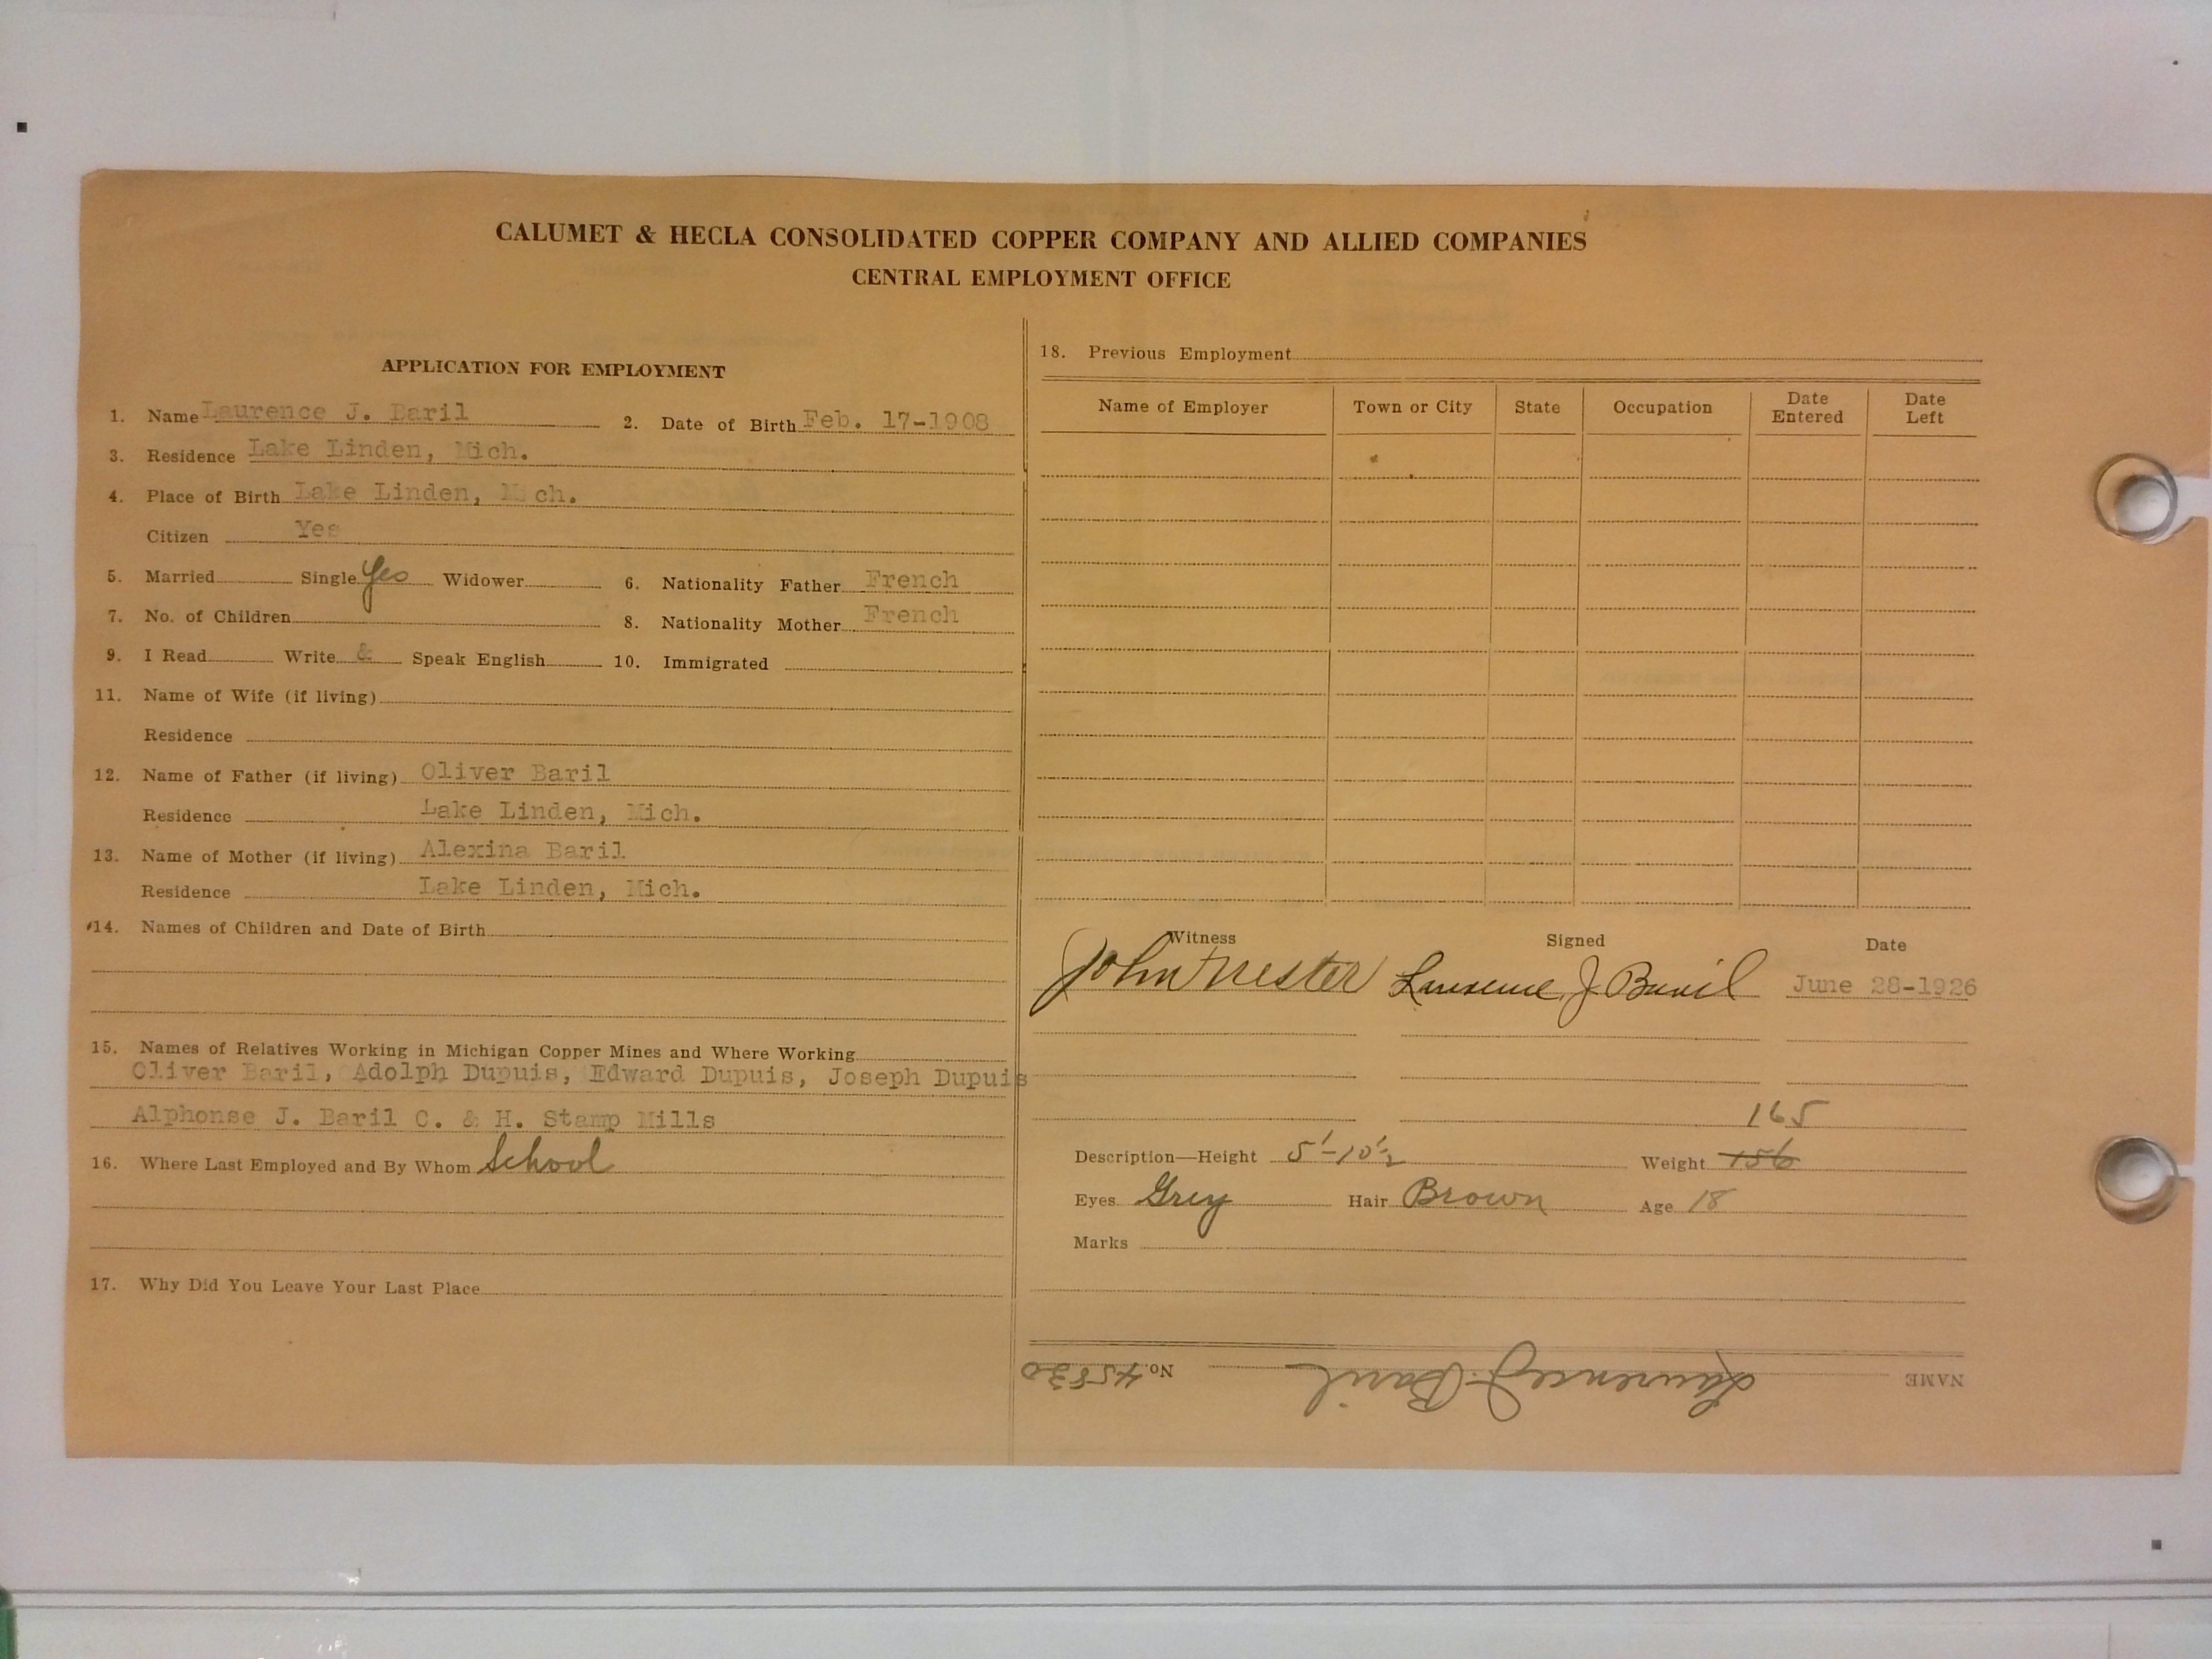 CALUMET & HECLA CONSOLIDATED COPPER COMPANY AND ALLIED COMPANIES
CENTRAL EMPLOYMENT OFFICE
APPLICATION FOR EMPLOYMENT
1. Name Laurence J. Baril 2. Date of Birth Feb. 17-1908
3. Residence Lake Linden, Mich.
4. Place of Birth Lake Linden, Mich.
Citizen Yes
5. Married Single Yes Widower 6. Nationality Father French
7. No. of Children 8. Nationality Mother French
9. I Read Write & Speak English 10. Immigrated
11. Name of Wife (if living)
Residence
12. Name of Father (if living) Oliver Baril
Residence Lake Linden, Mich.
13. Name of Mother (if living) Alexina Baril
Residence Lake Linden, Mich.
14. Names of Children and Date of Birth
15. Names of Relatives Working in Michigan Copper Mines and Where Working
Oliver Baril, Adolph Dupuis, Edward Dupuis, Joseph Dupuis
Alphonse J. Baril C. & H. Stamp Mills
16. Where Last Employed and By Whom School
17. Why Did You Leave Your Last Place
18. Previous Employment
Name of Employer Town or City State Occupation Date Entered Date Left
Witness Signed Date
John Trester Laurence J. Baril June 28-1926
165
Description—Height 5'-10½ Weight 156
Eyes Grey Hair Brown Age 18
Marks
NAME Laurence J. Baril No. 45830